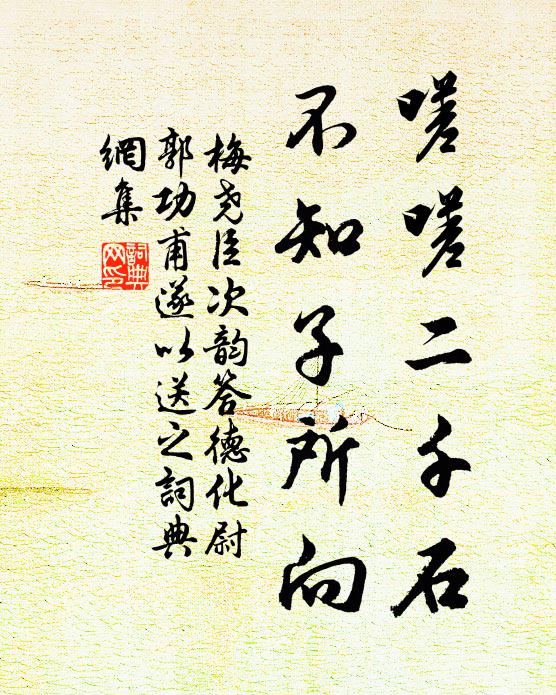 嗟嗟二千石
不知子所向
梅尧臣次韵答德化尉
郭功甫遂以送之词典
網集
詞典网印